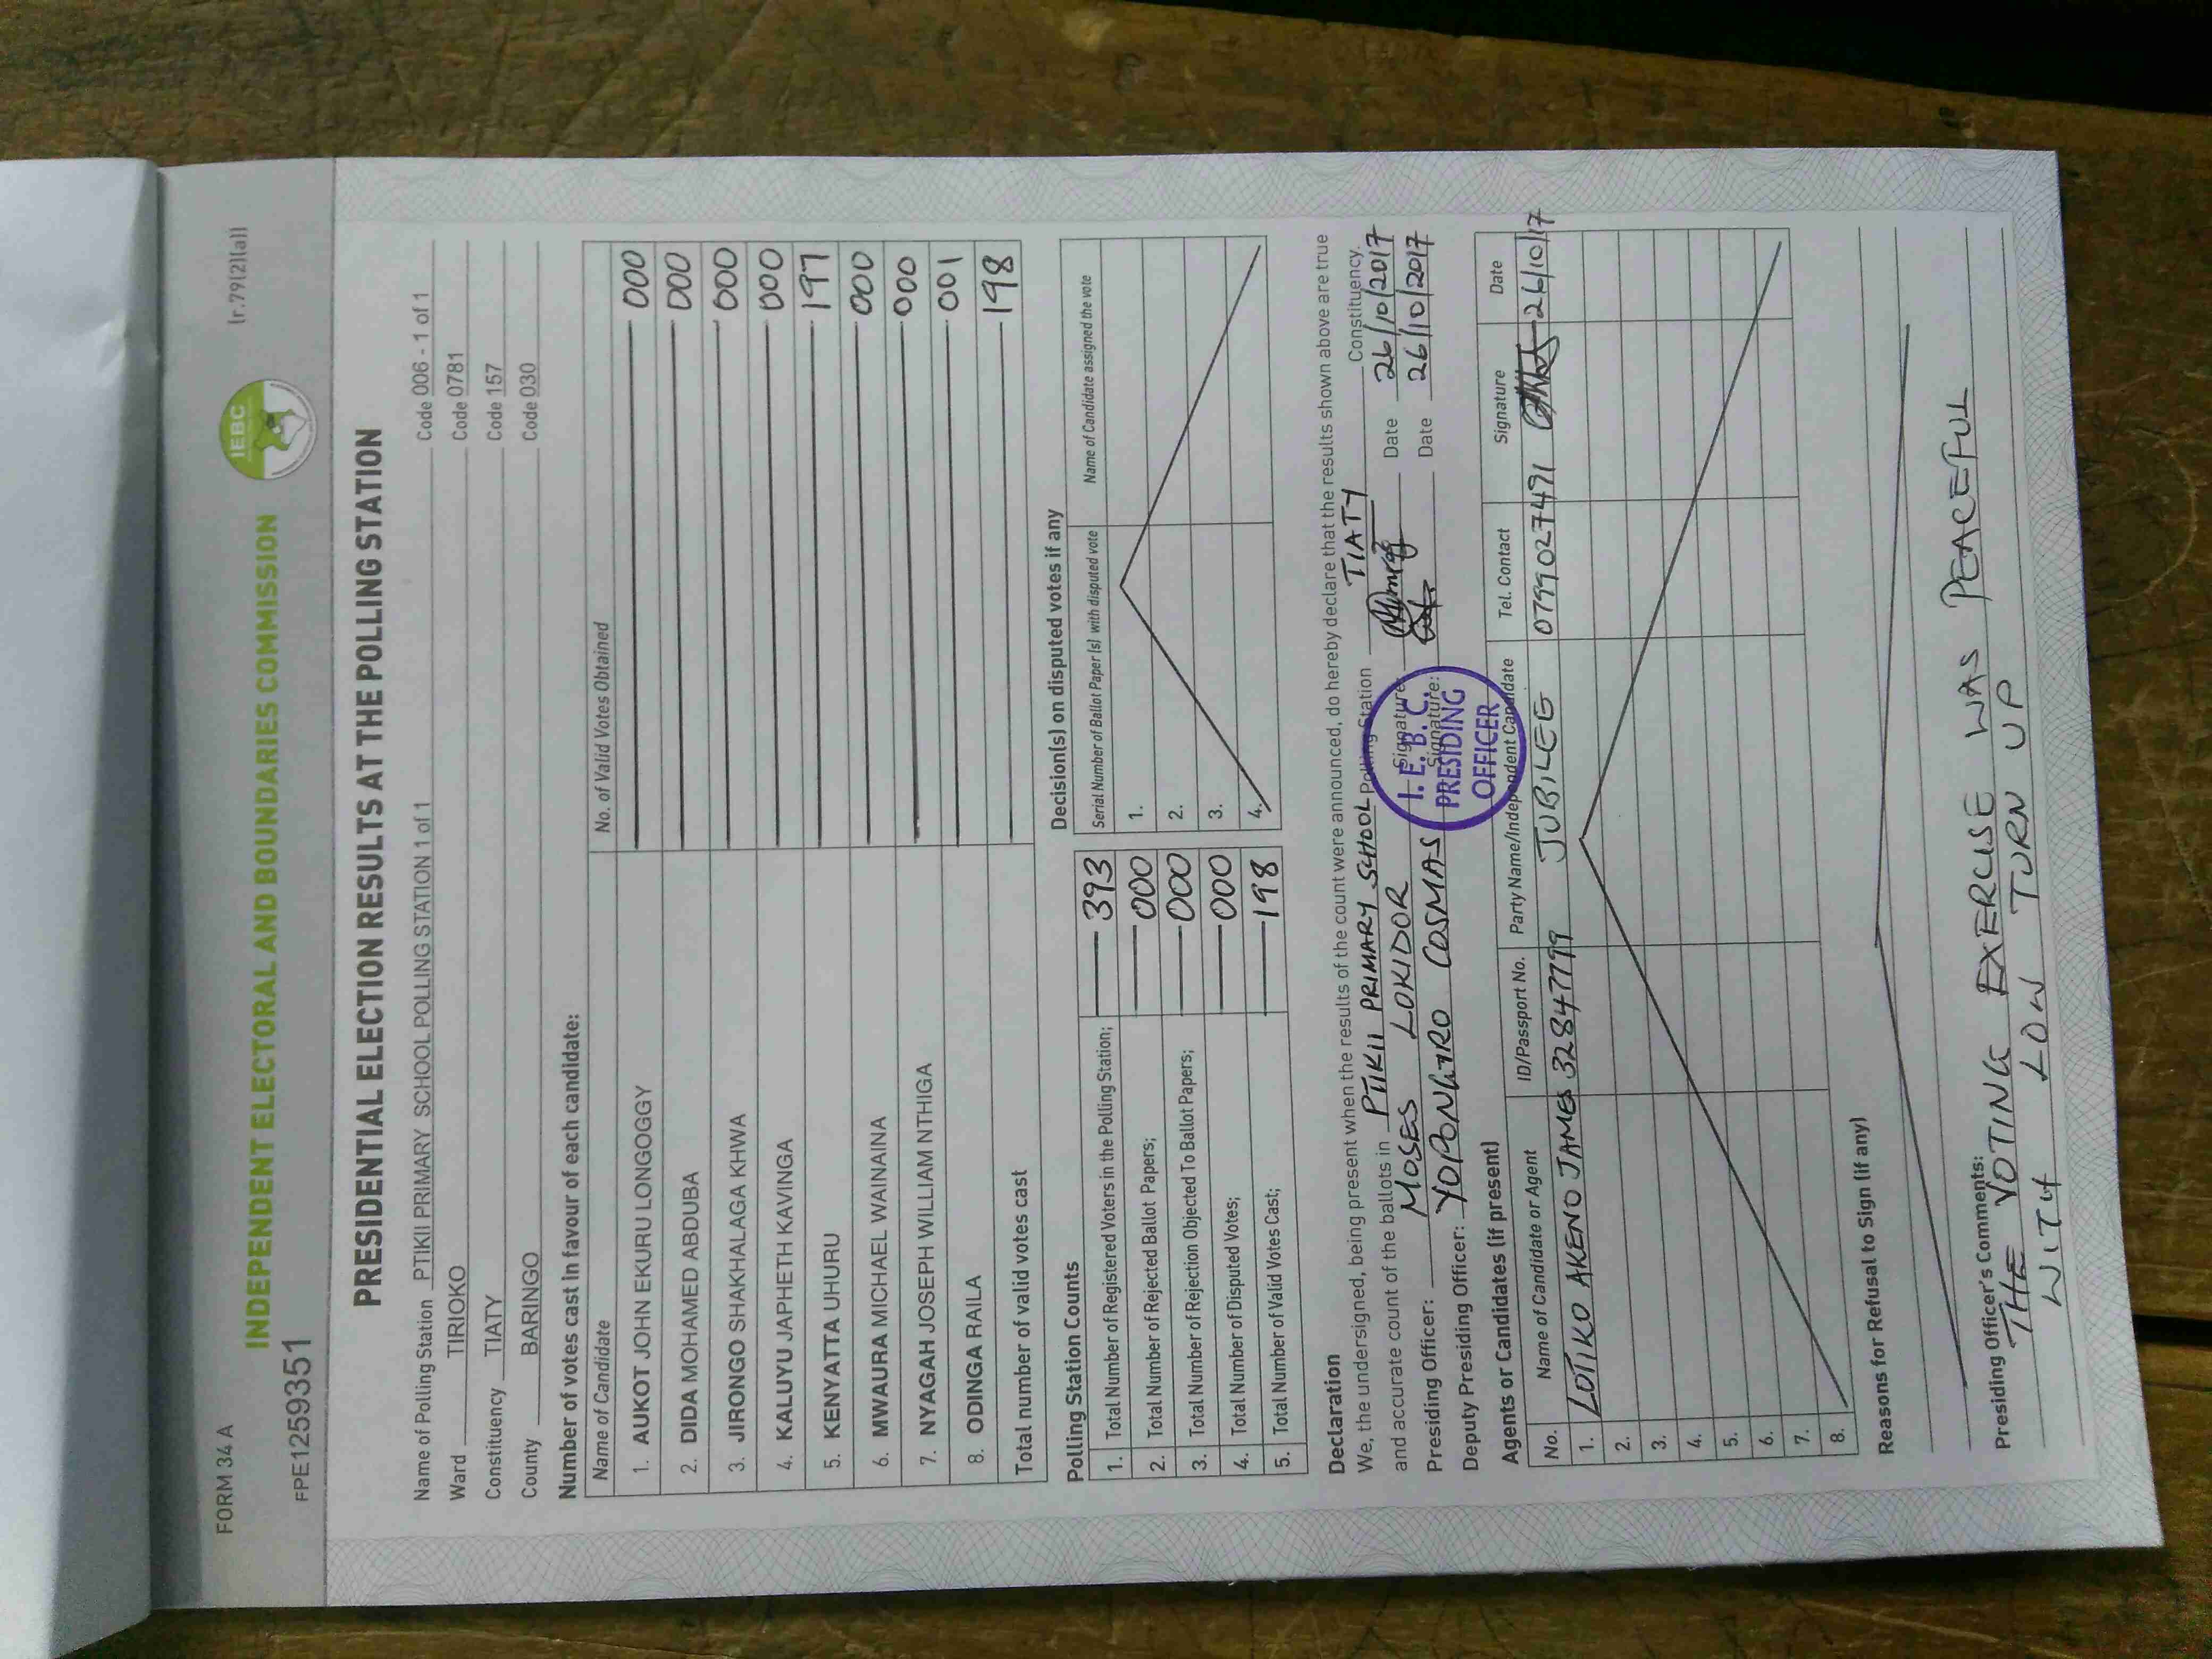 FORM 34 A
(r.79(2)(a))
INDEPENDENT ELECTORAL AND BOUNDARIES COMMISSION
IEBC
FPE1259351
PRESIDENTIAL ELECTION RESULTS AT THE POLLING STATION
Name of Polling Station PTIKII PRIMARY SCHOOL POLLING STATION 1 of 1 Code 006 - 1 of 1
Ward TIRIOKO Code 0781
Constituency TIATY Code 157
County BARINGO Code 030
Number of votes cast in favour of each candidate:
Name of Candidate No. of Valid Votes Obtained
1. AUKOT JOHN EKURU LONGOGGY 000
2. DIDA MOHAMED ABDUBA 000
3. JIRONGO SHAKHALAGA KHWA 000
4. KALUYU JAPHETH KAVINGA 000
5. KENYATTA UHURU 197
6. MWAURA MICHAEL WAINAINA 000
7. NYAGAH JOSEPH WILLIAM NTHIGA 000
8. ODINGA RAILA 001
Total number of valid votes cast 198
Polling Station Counts
1. Total Number of Registered Voters in the Polling Station; 393
2. Total Number of Rejected Ballot Papers; 000
3. Total Number of Rejection Objected To Ballot Papers; 000
4. Total Number of Disputed Votes; 000
5. Total Number of Valid Votes Cast; 198
Decision(s) on disputed votes if any
Serial Number of Ballot Paper (s) with disputed vote Name of Candidate assigned the vote
1.
2.
3.
4.
Declaration
We, the undersigned, being present when the results of the count were announced, do hereby declare that the results shown above are true
and accurate count of the ballots in PTIKII PRIMARY SCHOOL Polling Station TIATY Constituency.
Presiding Officer: MOSES LOKIDOR Signature: Date 26/10/2017
Deputy Presiding Officer: YOPONGIRO COSMAS Signature: Date 26/10/2017
I. E. B. C.
PRESIDING
OFFICER
Agents or Candidates (if present)
No. Name of Candidate or Agent ID/Passport No. Party Name/Independent Candidate Tel. Contact Signature Date
1. LOTIKO AKENO JAMES 32847799 JUBILEE 0799027491 26/10/17
2.
3.
4.
5.
6.
7.
8.
Reasons for Refusal to Sign (if any)
Presiding Officer's Comments:
THE VOTING EXERCISE WAS PEACEFUL
WITH LOW TURN UP